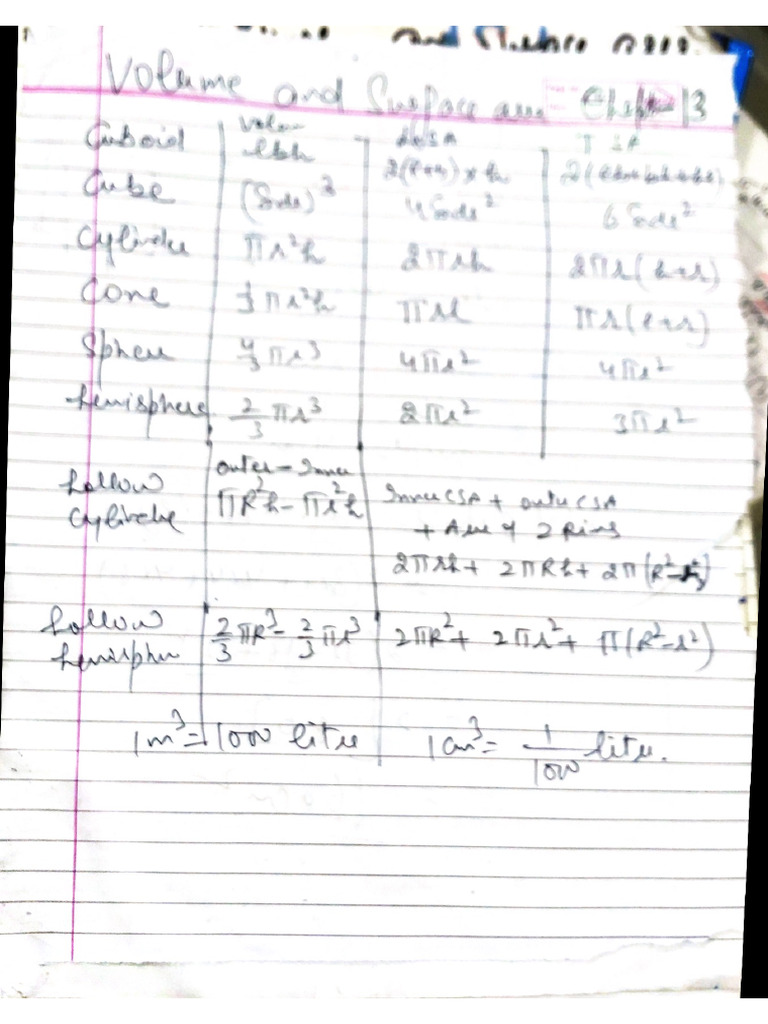 Volume and Surface area Chapter 13
Volume LSA TSA
Cuboid lbh 2(l+b)×h 2(lb+bh+hl)
Cube (Side)³ 4 Side² 6 Side²
Cylinder πr²h 2πrh 2πr(h+r)
Cone 1/3 πr²h πrl πr(l+r)
Sphere 4/3 πr³ 4πr² 4πr²
hemisphere 2/3 πr³ 2πr² 3πr²
outer - Inner
hollow πR²h - πr²h Inner CSA + outer CSA
cylinder + Area of 2 Rims
2πrh + 2πRh + 2π(R²-r²)
hollow 2/3 πR³ - 2/3 πr³ 2πR² + 2πr² + π(R²-r²)
hemispher
1m³ = 1000 litre 1cm³ = 1/1000 litre.